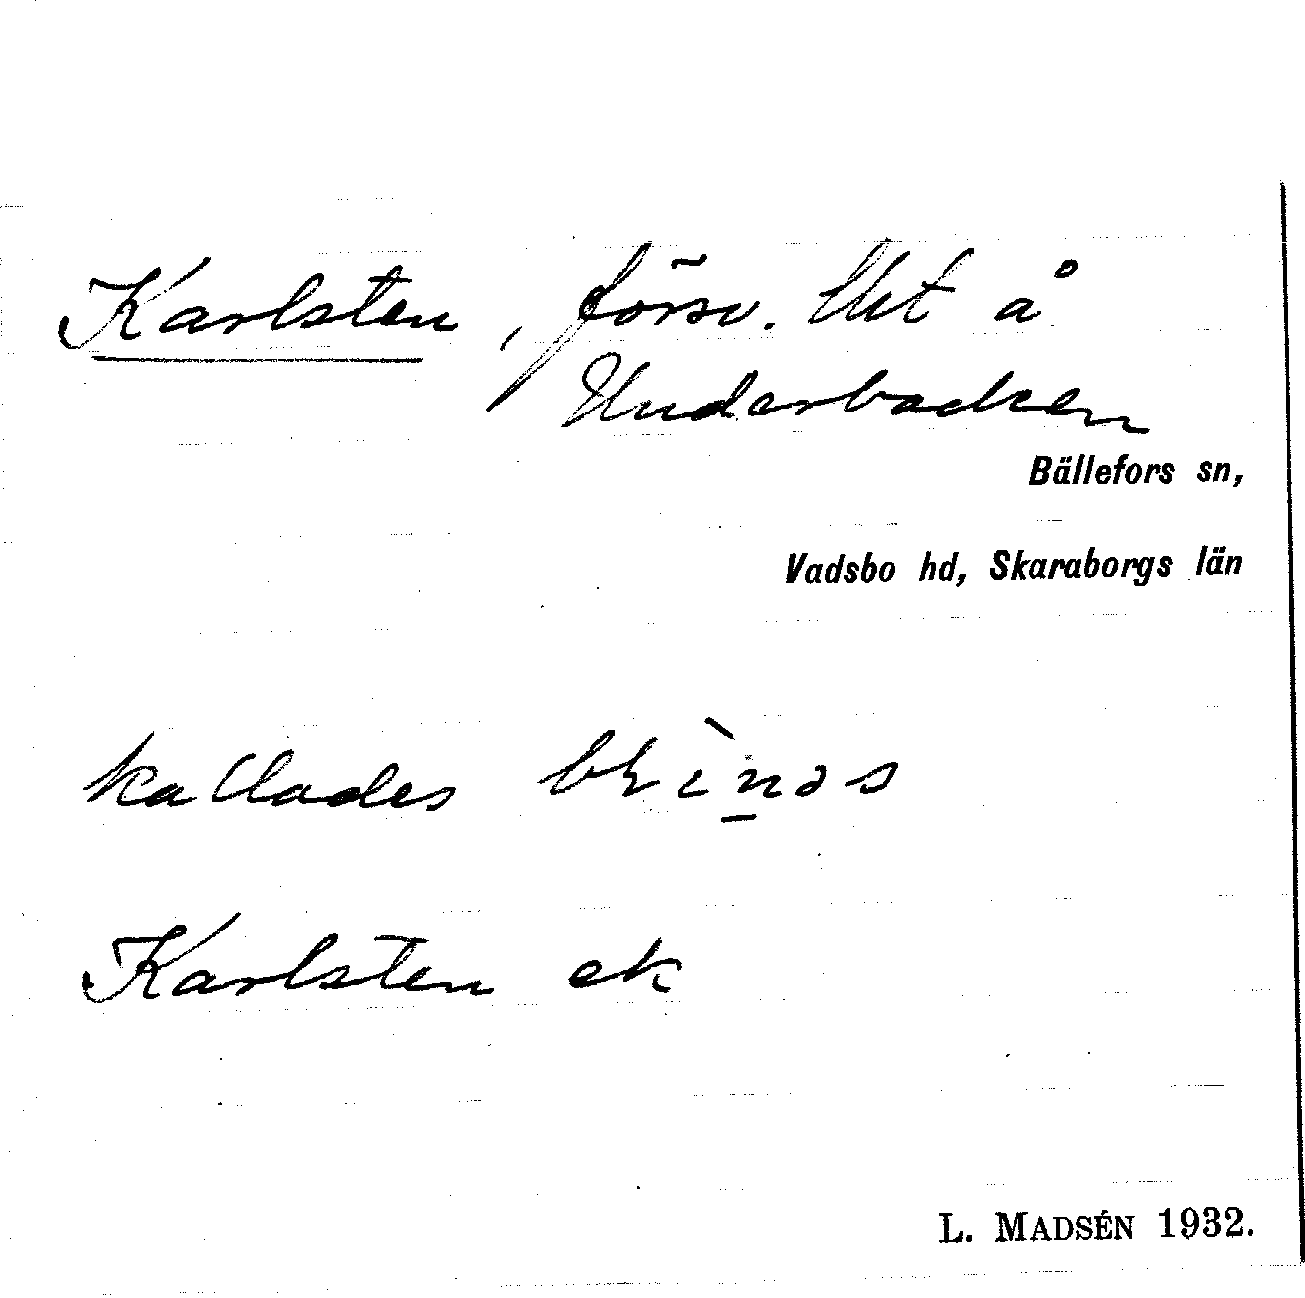 Karlsten, försv. lht å
Underbacken
Bällefors sn,
Vadsbo hd, Skaraborgs län
kallades
Karlsten ek
L. MADSÉN 1932.